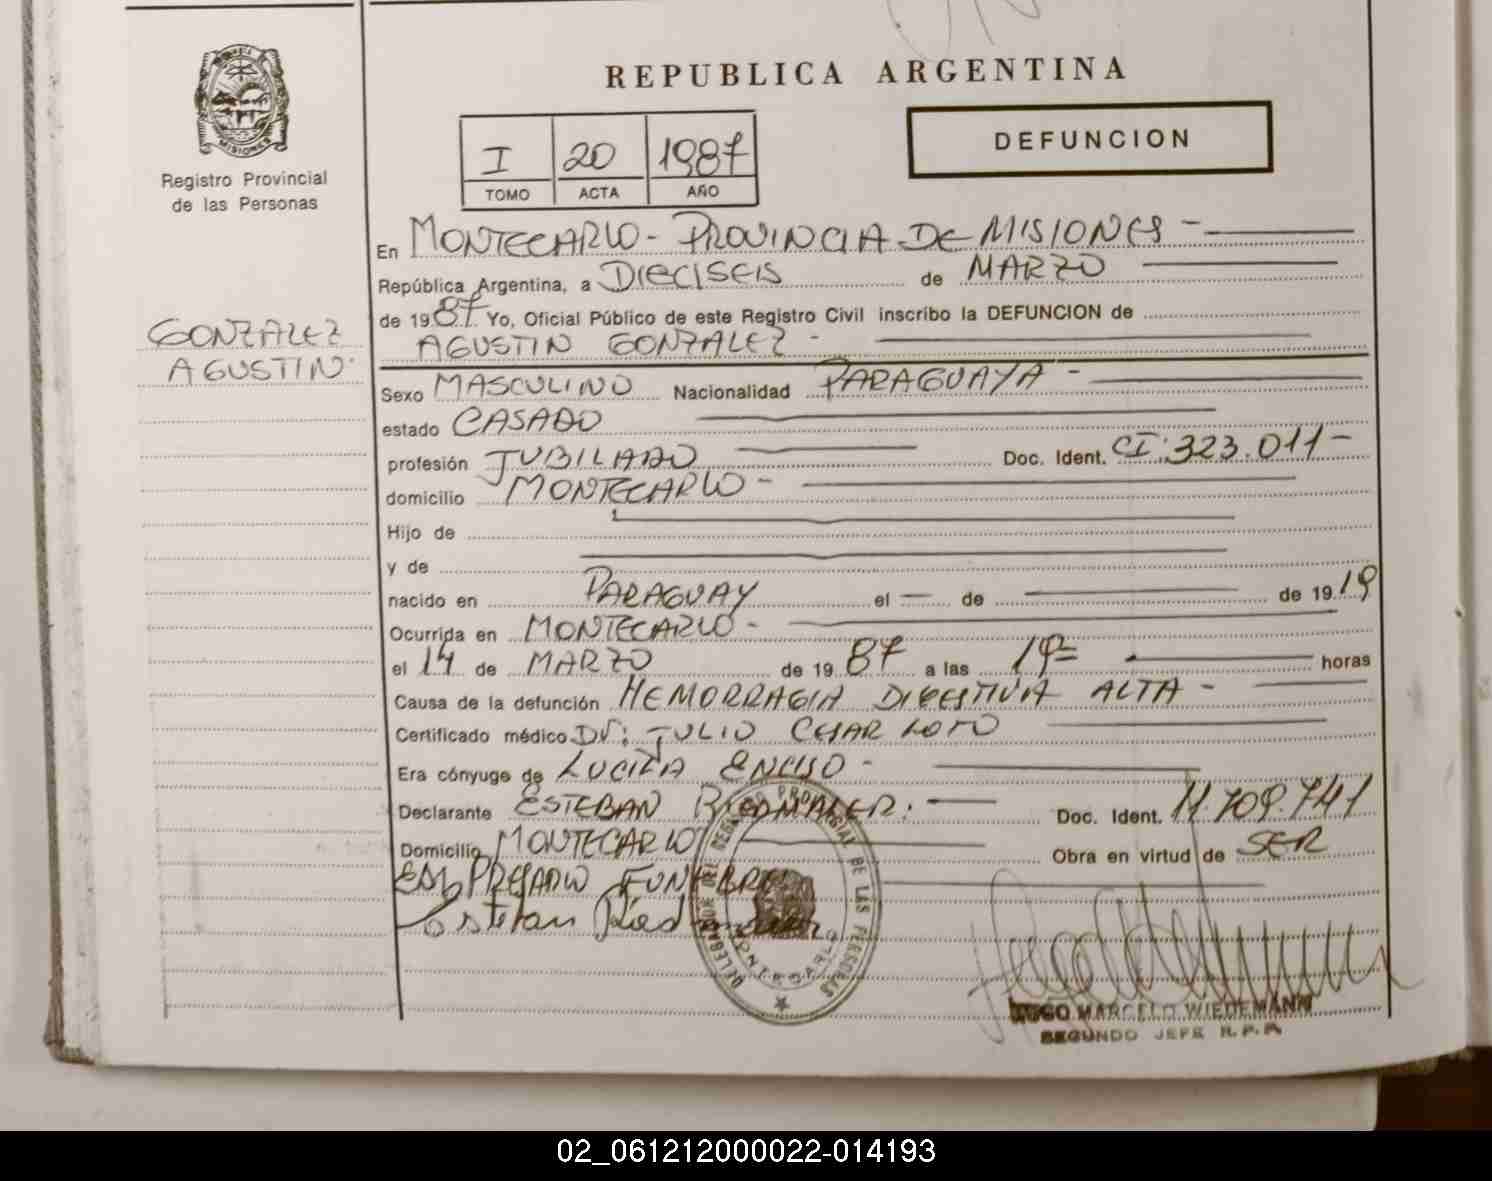 REPUBLICA ARGENTINA
MISIONES
Registro Provincial
de las Personas
I 20 1987
TOMO ACTA AÑO
DEFUNCION
En MONTECARLO - PROVINCIA DE MISIONES -
República Argentina, a DIECISEIS de MARZO
de 1987. Yo, Oficial Público de este Registro Civil inscribo la DEFUNCION de
AGUSTIN GONZALEZ -
GONZALEZ
AGUSTIN
Sexo MASCULINO Nacionalidad PARAGUAYA -
estado CASADO
profesión JUBILADO Doc. Ident. CI: 323.011-
domicilio MONTECARLO -
Hijo de
y de
nacido en PARAGUAY el — de — de 1919
Ocurrida en MONTECARLO -
el 14 de MARZO de 1987 a las 19= horas
Causa de la defunción HEMORRAGIA DIGESTIVA ALTA -
Certificado médico Dr: JULIO CESAR LOTO
Era cónyuge de LUCILA ENCISO -
Declarante ESTEBAN Doc. Ident. 11.709.741
Domicilio MONTECARLO Obra en virtud de SER
EMPRESARIO FUNEBRE
Esteban
DELEGADOR DEL REGISTRO PROVINCIAL DE LAS PERSONAS
MONTECARLO
HUGO MARCELO WIEDEMANN
SEGUNDO JEFE R.P.P.
02_061212000022-014193